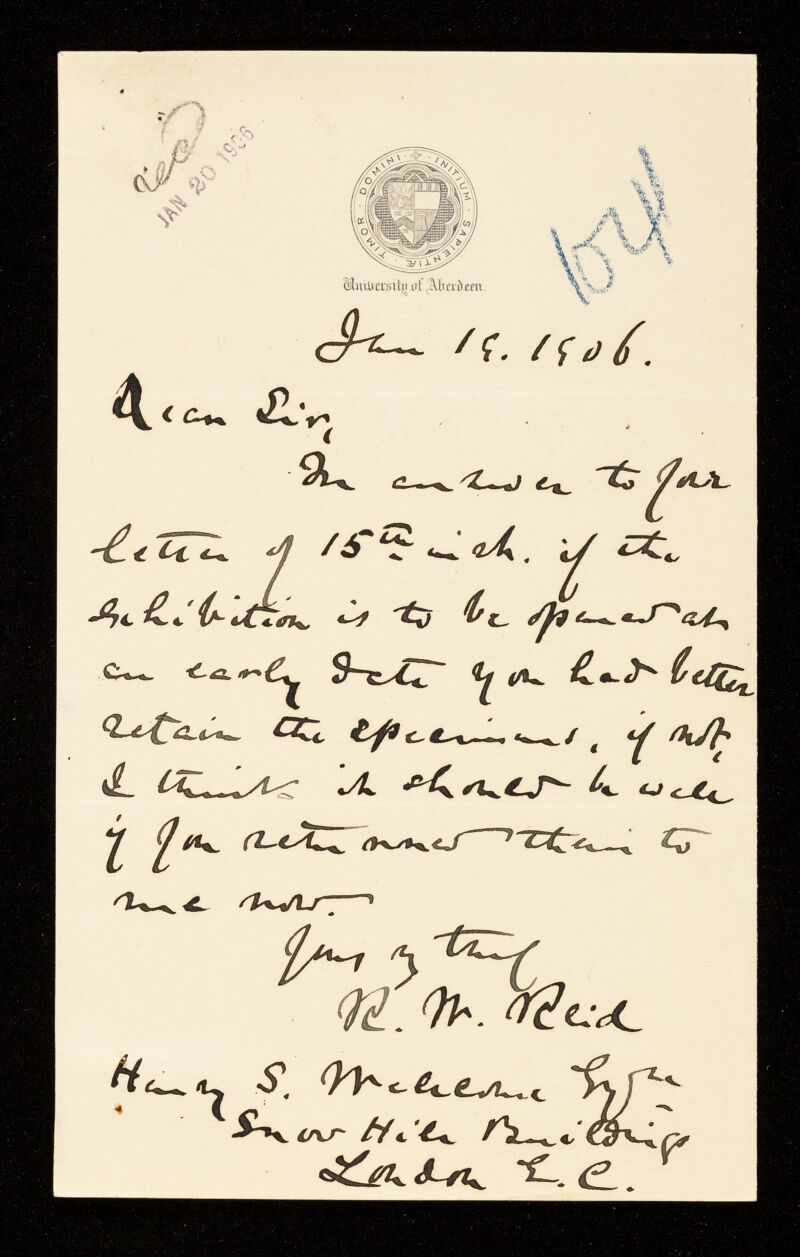 recd
JAN 20 1906
TIMOR · DOMINI · INITIUM · SAPIENTIÆ
104
University of Aberdeen
Jan 19. 1906.
Dear Sir,
In answer to your
letter of 15th inst. if the
exhibition is to be opened at
an early date you had better
retain the specimens, if not,
I think it should be well
if you returned them to
me now.
Yours truly
R. W. Reid
Henry S. Wellcome Esqre
Snow Hill Buildings
London E. C.